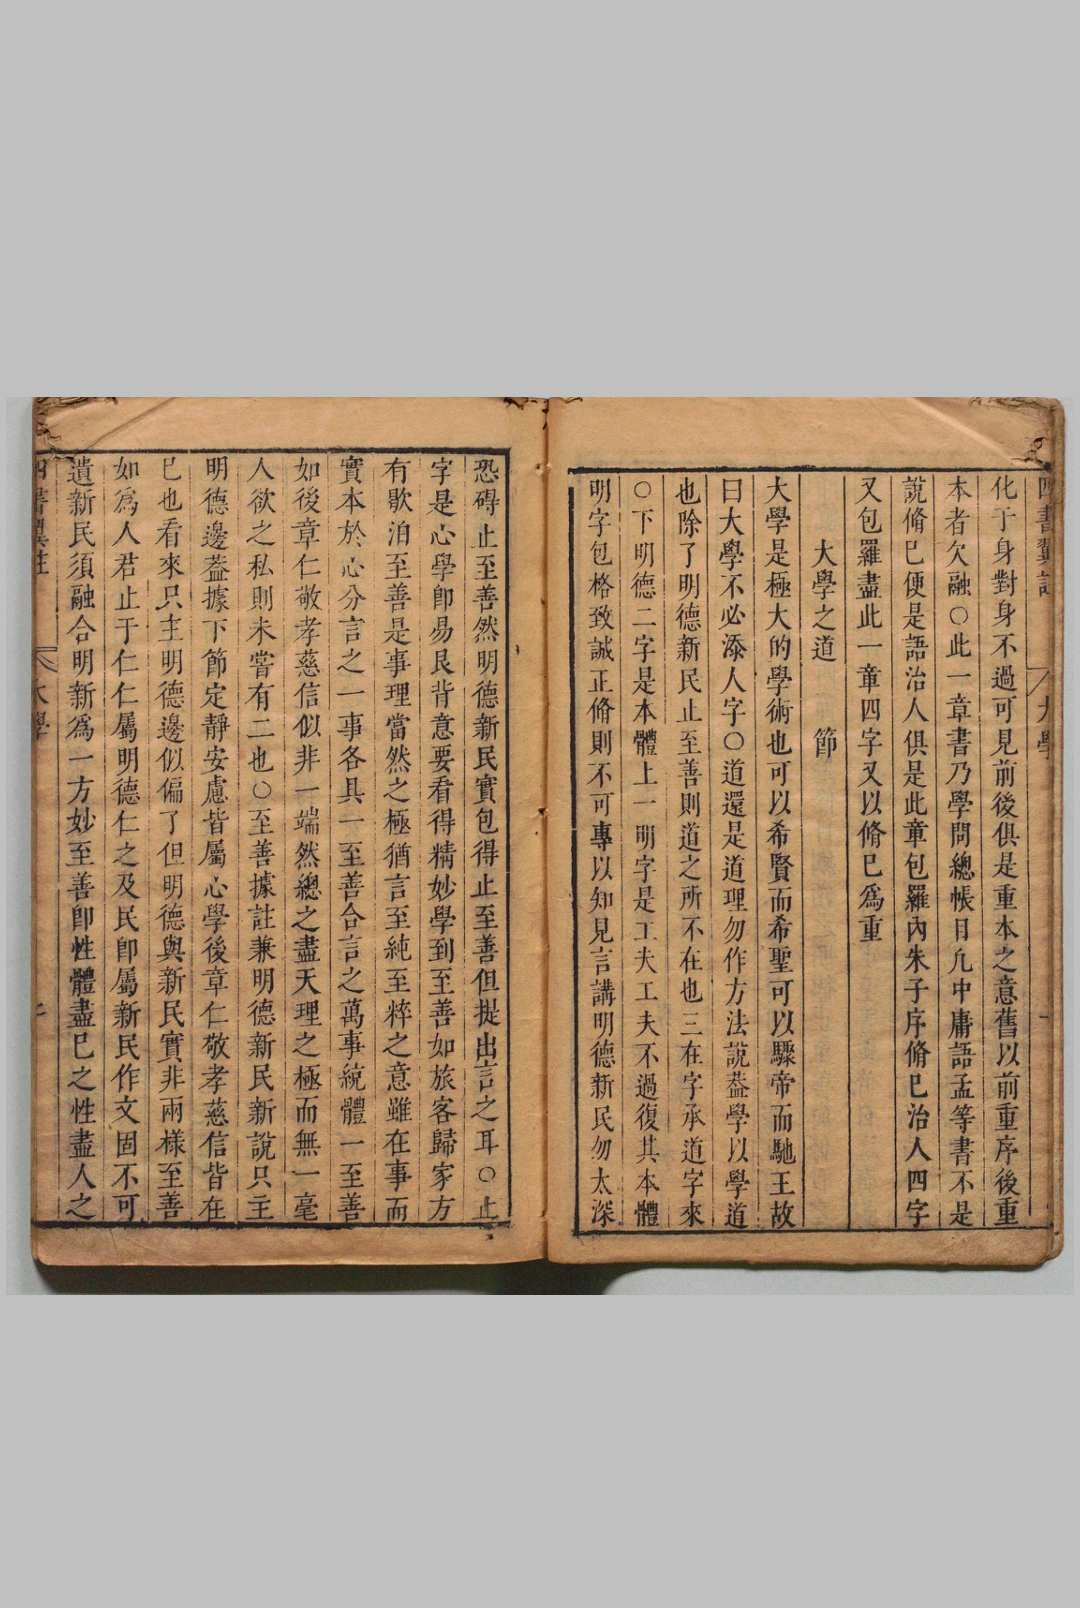 化于身對身不過可見前後俱是重本之意舊以前重序後重
本者欠融○此一章書乃學問總帳目凡中庸語孟等書不是
說脩巳便是語治人俱是此章包羅內朱子序脩巳治人四字
又包羅盡此一章四字又以脩巳爲重
大學之道 節
大學是極大的學術也可以希賢而希聖可以驟帝而馳王故
曰大學不必添人字○道還是道理勿作方法說葢學以學道
也除了明德新民止至善則道之所不在也三在字承道字來
○下明德二字是本體上一明字是工夫工夫不過復其本體
明字包格致誠正脩則不可專以知見言講明德新民勿太深
恐碍止至善然明德新民實包得止至善但提出言之耳○止
字是心學卽易艮背意要看得精妙學到至善如旅客歸家方
有歇泊至善是事理當然之極猶言至純至粹之意雖在事而
實本於心分言之一事各具一至善合言之萬事統體一至善
如後章仁敬孝慈信似非一端然總之盡天理之極而無一毫
人欲之私則未嘗有二也○至善據註兼明德新民新說只主
明德邊葢據下節定靜安慮皆屬心學後章仁敬孝慈信皆在
巳也看來只主明德邊似偏了但明德與新民實非兩樣至善
如爲人君止于仁仁屬明德仁之及民卽屬新民作文固不可
遺新民須融合明新爲一方妙至善卽性體盡巳之性盡人之
大學